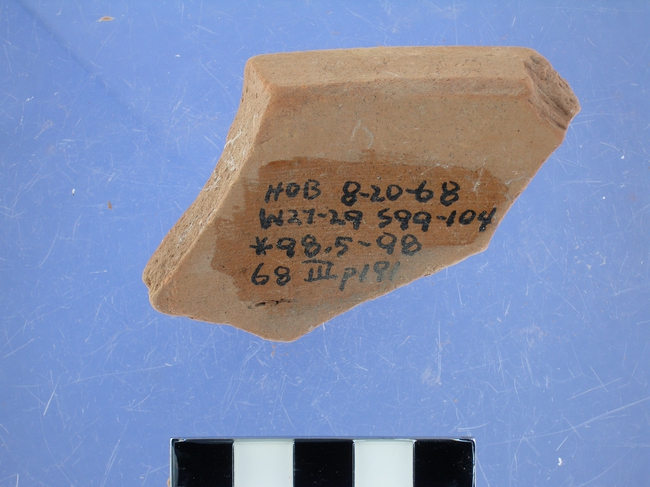 HOB 8-20-68
W27-29 S99-104
*98.5-98
68 III p191